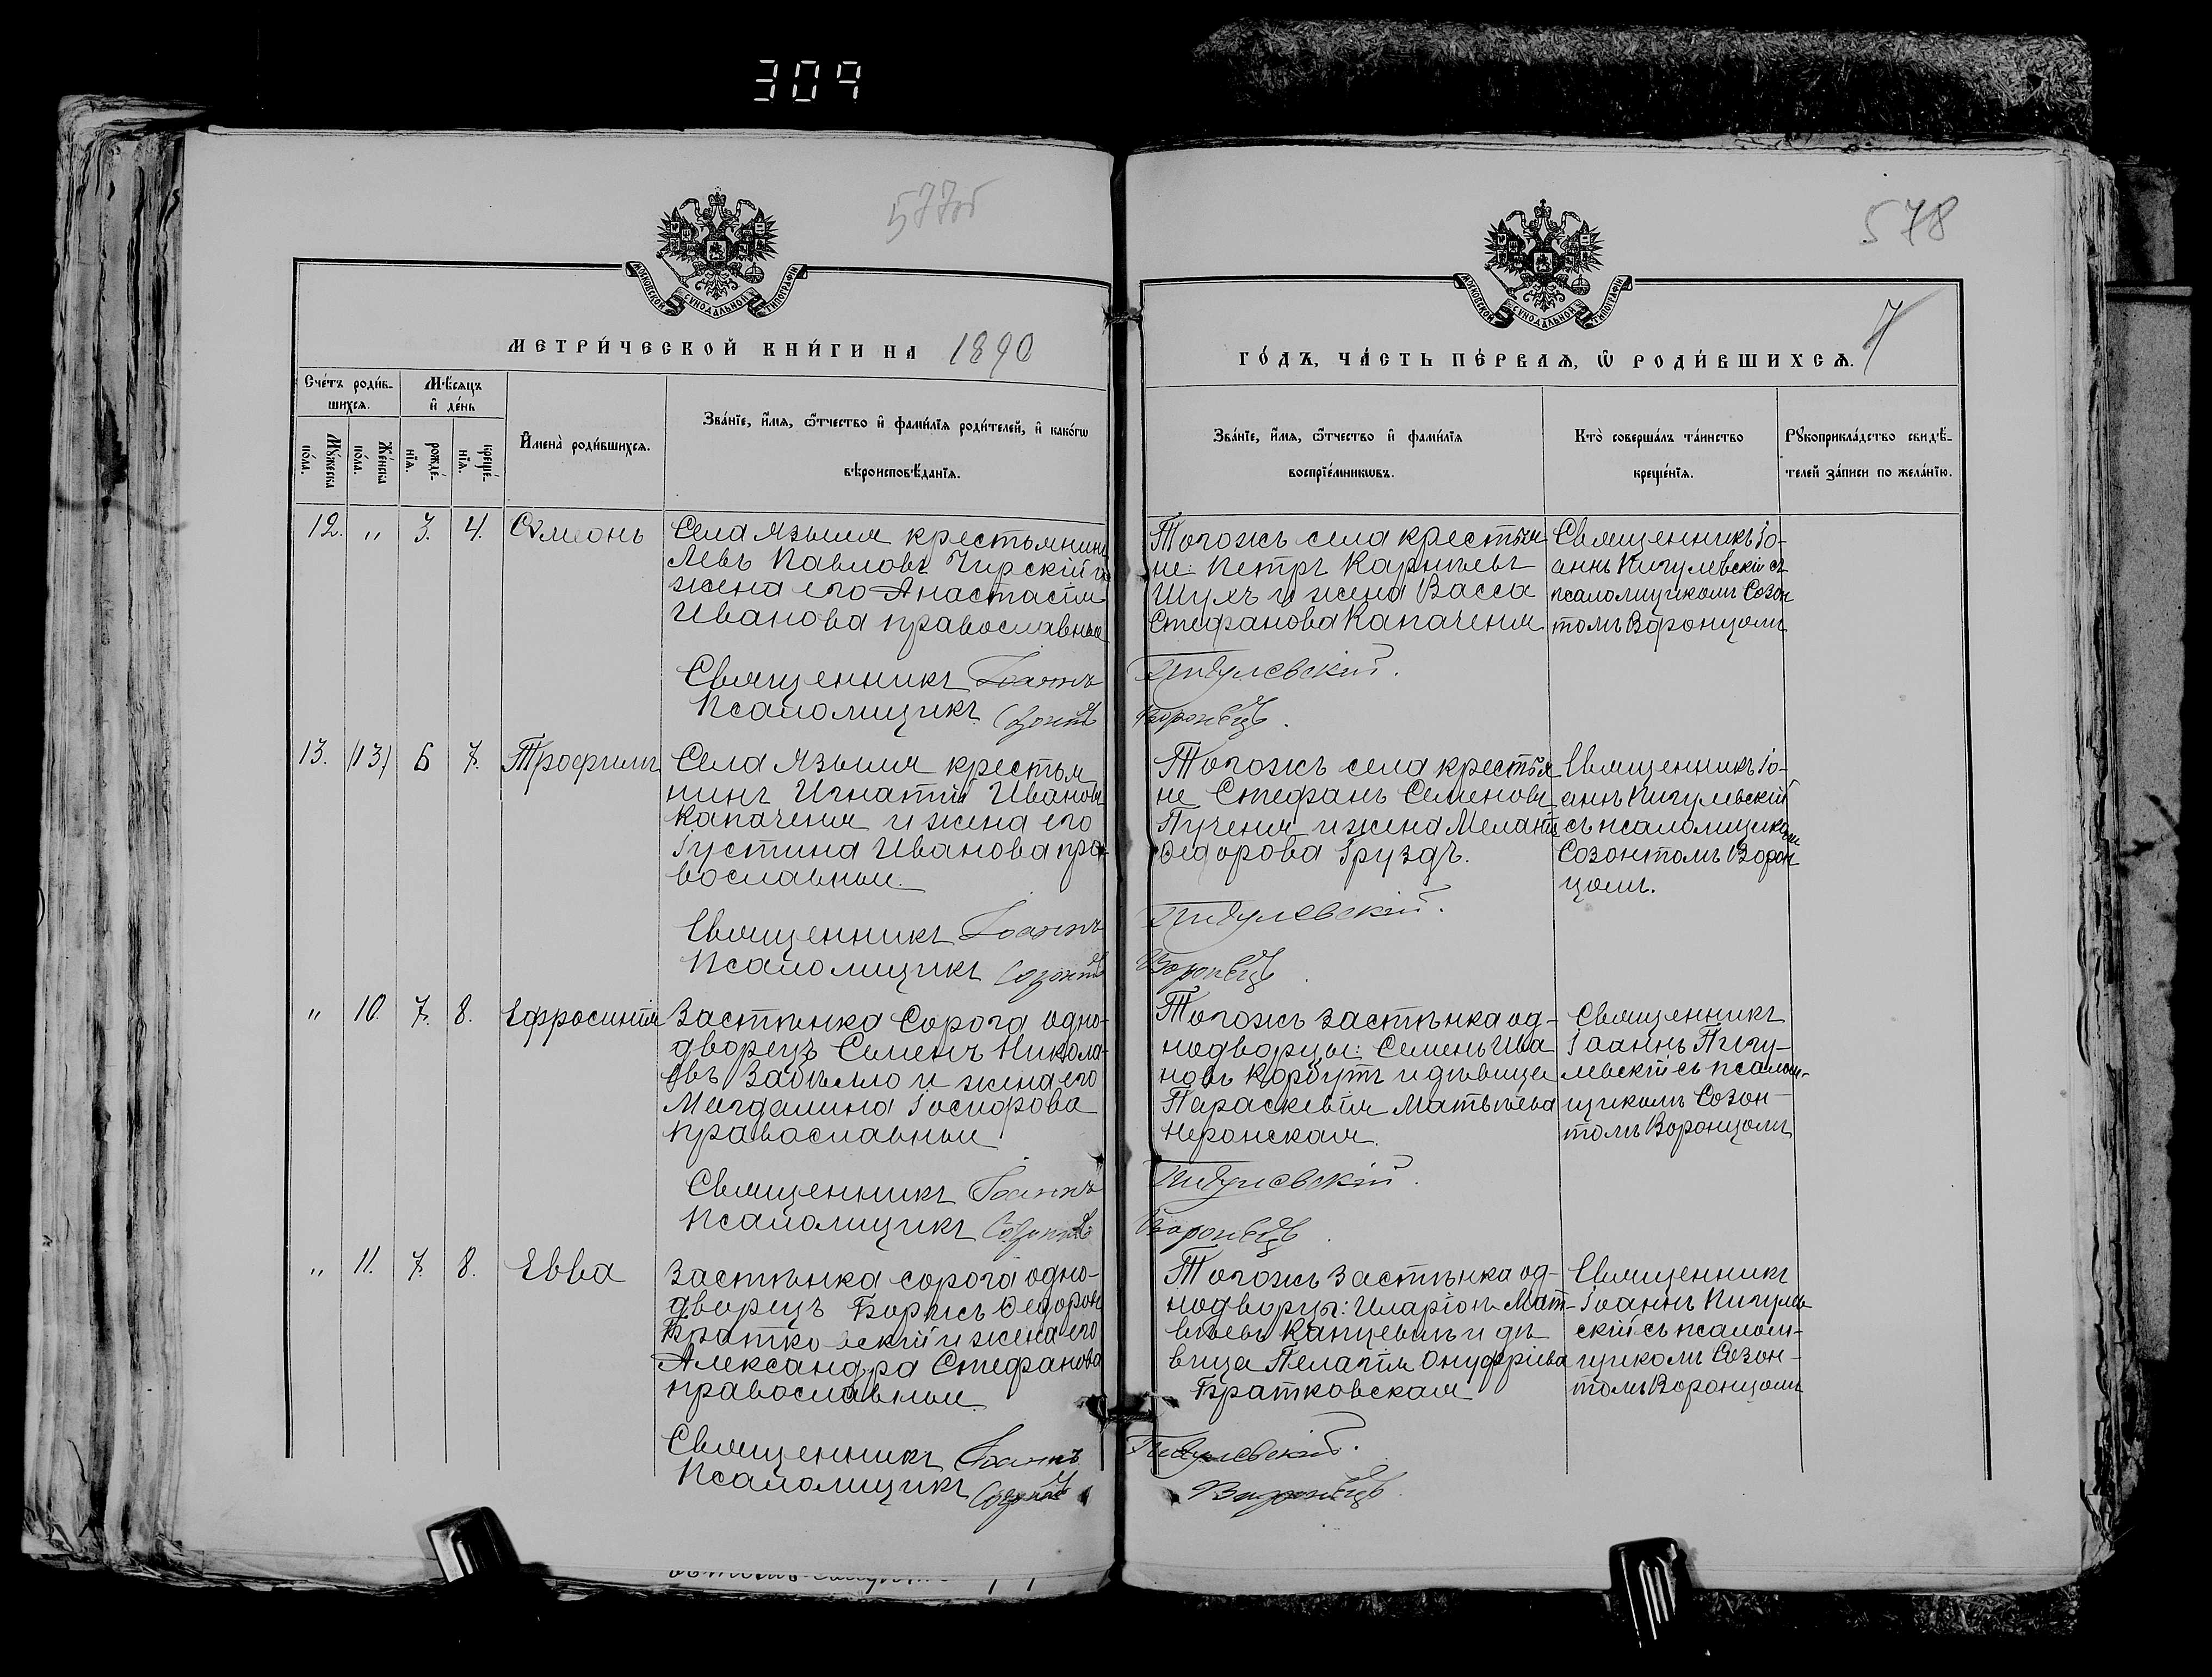 309
577об
МОСКОВСКОЙ СѴНОДАЛЬНОЙ ТИПОГРАФІИ
МЕТРИ́ЧЕСКОЙ КНИ́ГИ НА 1890
Сче́тъ роди́в-
шихсѧ.
Мѣ́сяцъ
и҆ де́нь
Мꙋ́жеска
по́ла.
Же́нска
по́ла.
рожде́-
нїѧ.
креще́-
нїѧ.
И҆мена̀ роди́вшихсѧ.
Зва́нїе, и҆́мѧ, ѻ҆́тчество и҆ фами́лїѧ роди́телей, и҆ како́гѡ
вѣроисповѣ́данїѧ.
12. " 3. 4. Сѵмеонъ
Села Языля крестьянинъ
Левъ Павловъ Чирскій и
жена его Анастасія
Иванова православные
Священникъ Іоаннъ
Псаломщикъ Созонтъ
13. (13) 6 7. Трофимъ
Села Языля крестья
нинъ Игнатій Ивановъ
Капаченя и жена его
Іустина Иванова пра-
вославные.
Священникъ Іоаннъ
Псаломщикъ Созонтъ
" 10. 7. 8. Ефросинія
Застѣнка Сорога одно-
дворецъ Семенъ Никола-
евъ Забѣлло и жена его
Магдалина Іосифова
православные
Священникъ Іоаннъ
Псаломщикъ Созонтъ
" 11. 7. 8. Евва
Застѣнка Сорога одно-
дворецъ Борисъ Ѳедоровъ
Братковскій и жена его
Александра Стефанова
православные
Священникъ Іоаннъ
Псаломщикъ Созонтъ
578
МОСКОВСКОЙ СѴНОДАЛЬНОЙ ТИПОГРАФІИ
7
ГО́ДЪ, ЧА́СТЬ ПЕ́РВАѦ, Ѡ҆ РОДИ́ВШИХСѦ.
Зва́нїе, и҆́мѧ, ѻ҆́тчество и҆ фами́лїѧ
воспрїе́мникѡвъ.
Кто̀ соверша́лъ та́инство
креще́нїѧ.
Рꙋкоприкла́дство свидѣ́-
телей за́писи по жела́нїю.
Тогожъ села крестья-
не: Петръ Карнѣевъ
Шухъ и жена Васса
Стефанова Капаченя
Священникъ Іо-
аннъ Пигулевскій съ
псаломщикомъ Созон
томъ Воронцомъ
Пигулевскій.
Воронецъ.
Тогожъ села крестья
не Стефанъ Семеновъ
Пученя и жена Меланія
Ѳедорова Груздъ.
Священникъ Іо-
аннъ Пигулевскій
съ псаломщикомъ
Созонтомъ Ворон
цомъ.
Пигулевскій.
Воронецъ
Тогожъ застѣнка од-
нодворцы: Семенъ Ива
новъ Корбутъ и дѣвица
Параскевія Матвѣева
Неронская.
Священникъ
Іоаннъ Пигу-
левскій съ псалом-
щикомъ Созон-
томъ Воронцомъ
Пигулевскій.
Воронецъ.
Тогожъ застѣнка од-
нодворцы: Иларіонъ Мат-
вѣевъ Канцевичъ и дѣ
вица Пелагія Онуфріева
Братковская
Священникъ
Іоаннъ Пигулев
скій съ псалом-
щикомъ Созон-
томъ Воронцомъ
Пигулевскій.
Воронецъ.